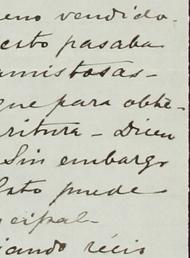 eno vendido.
esto pasaba
amistosas-
que para obte-
ritura - Dicen
Sin embargo
Esto puede
cipal-
iando récio